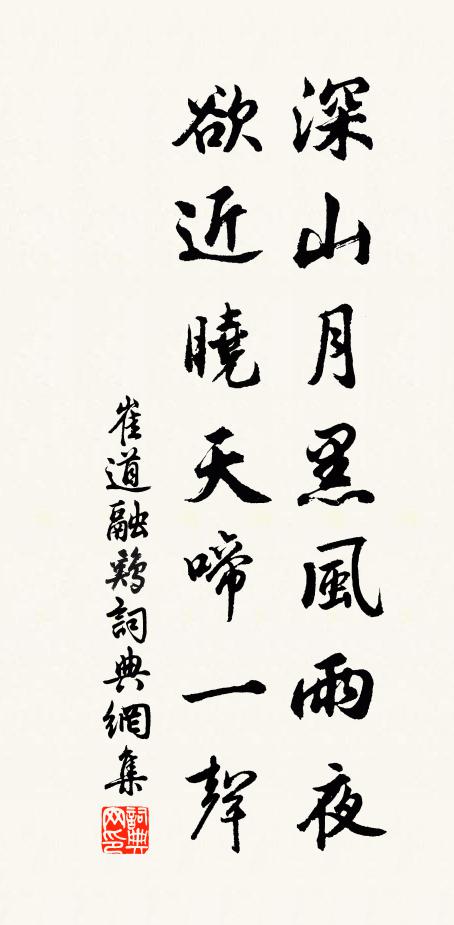 深山月黑風雨夜
欲近曉天啼一聲
崔道融鷄詞典網集
詞典網印